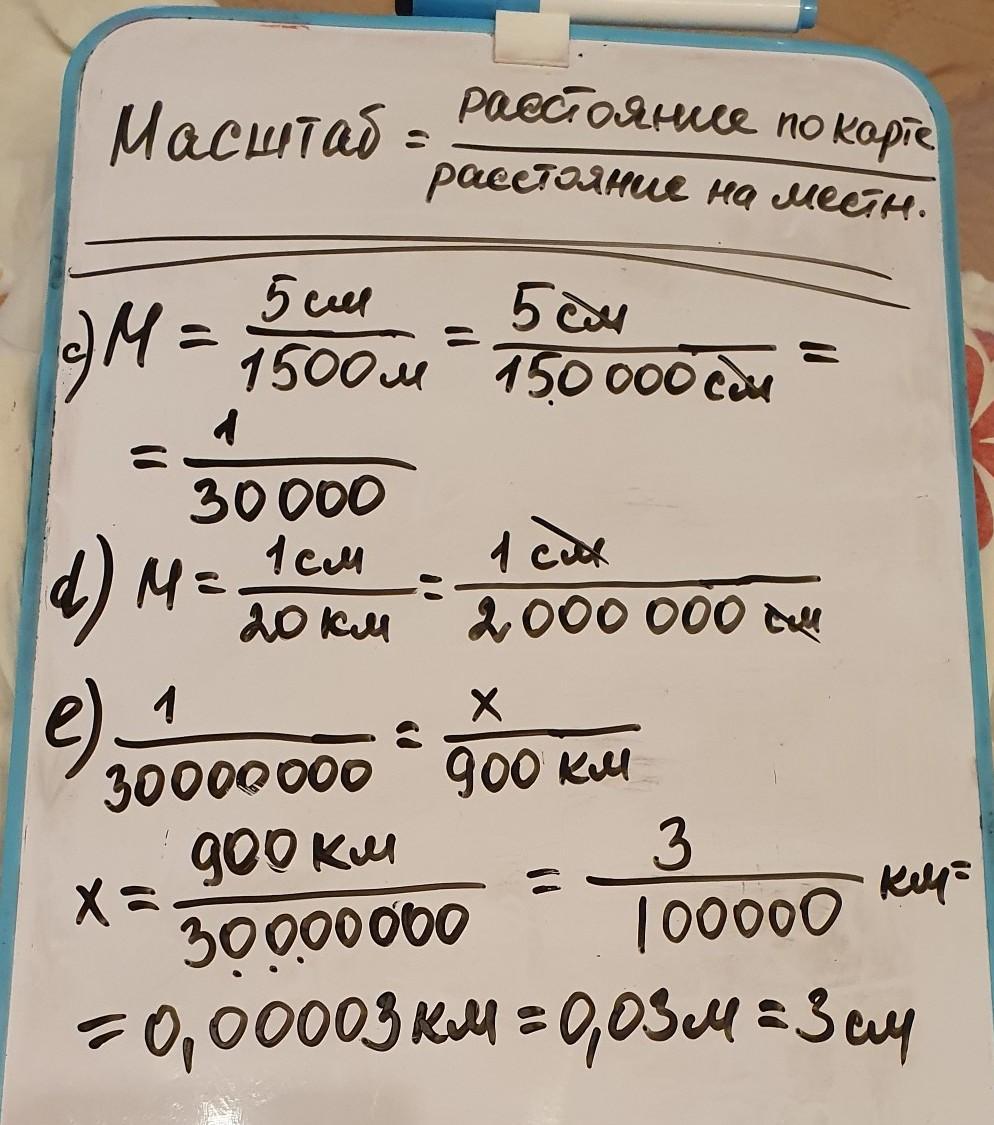 Масштаб = расстояние по карте / расстояние на местн.
c) М = 5 см / 1500 м = 5 см / 150 000 см =
= 1 / 30 000
d) М = 1 см / 20 км = 1 см / 2 000 000 см
e) 1 / 30000000 = x / 900 км
x = 900 км / 30000000 = 3 / 100000 км =
= 0,00003 км = 0,03 м = 3 см